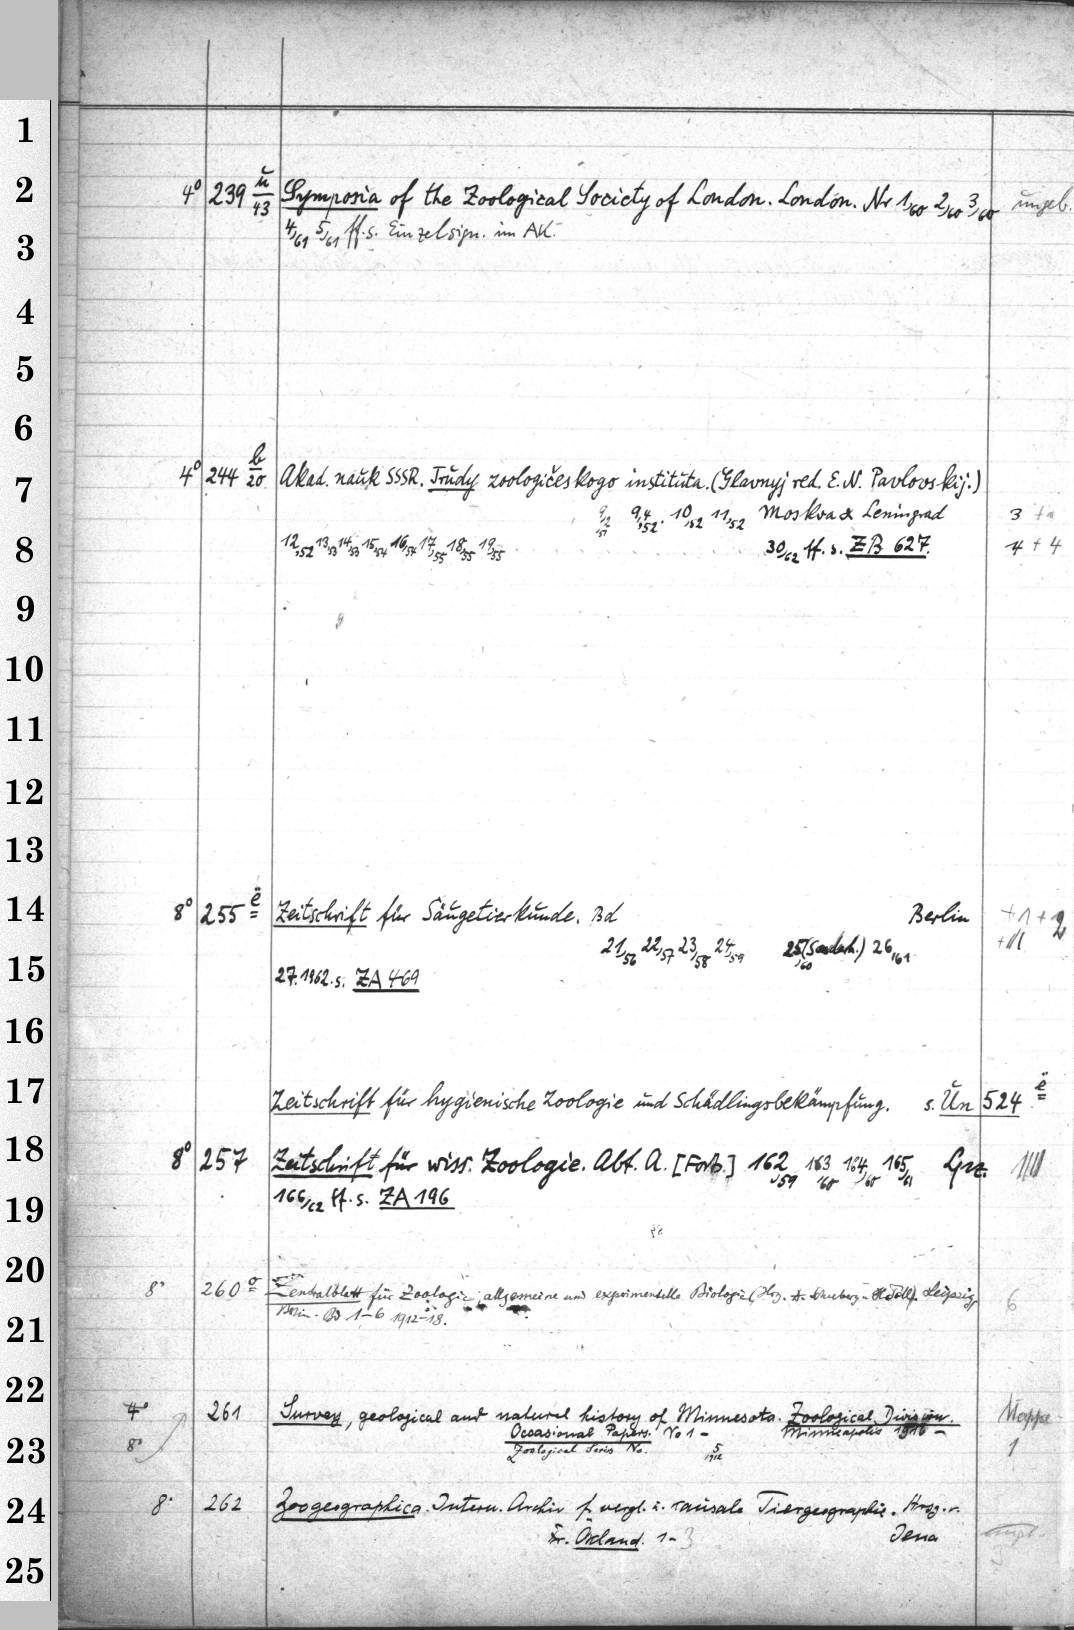 1
2
3
4
5
6
7
8
9
10
11
12
13
14
15
16
17
18
19
20
21
22
23
24
25
4° 239 ŭ/43 Symposia of the Zoological Society of London. London. Nr 1/60 2/60 3/60 ungeb.
4/61 5/61 ff. s. Einzelsign. im AK.
4° 244 b/20 Akad. nauk SSSR. Trudy zoologičeskogo instituta. (Glavnyj red. E. N. Pavlovskij.)
9,2/51 9,4/52. 10/52 11/52 Moskva & Leningrad 3 +
12/52 13/53 14/53 15/54 16/54 17/55 18/55 19/55 30/62 ff. s. ZB 627. 4 + 4
8° 255 ë Zeitschrift für Säugetierkunde. Bd Berlin +1 + 2
21/56 22/57 23/58 24/59 25/60 (Sonderh.) 26/61 +11
27. 1962. s. ZA 469
Zeitschrift für hygienische Zoologie und Schädlingsbekämpfung. s. Un 524 ë
8° 257 Zeitschrift für wiss. Zoologie. Abt. A. [Forts.] 162/59 163/60 164/60 165/61 Lpz. IIII
166/62 ff. s. ZA 196
8° 260 o Zentralblatt für Zoologie, allgemeine und experimentelle Biologie (Hrg. A. Schuberg - H. Poll). Leipzig, 6
Berlin. Bd 1-6 1912-18.
4° 261 Survey, geological and natural history of Minnesota. Zoological Division. Mappe
8° Occasional Papers: No 1 - Minneapolis 1916 - 1
Zoological Series No. 5 1912
8° 262 Zoogeographica. Intern. Archiv f. vergl. u. kausale Tiergeographie. Hrsg. v.
Fr. Ökland. 1-3 Jena
3